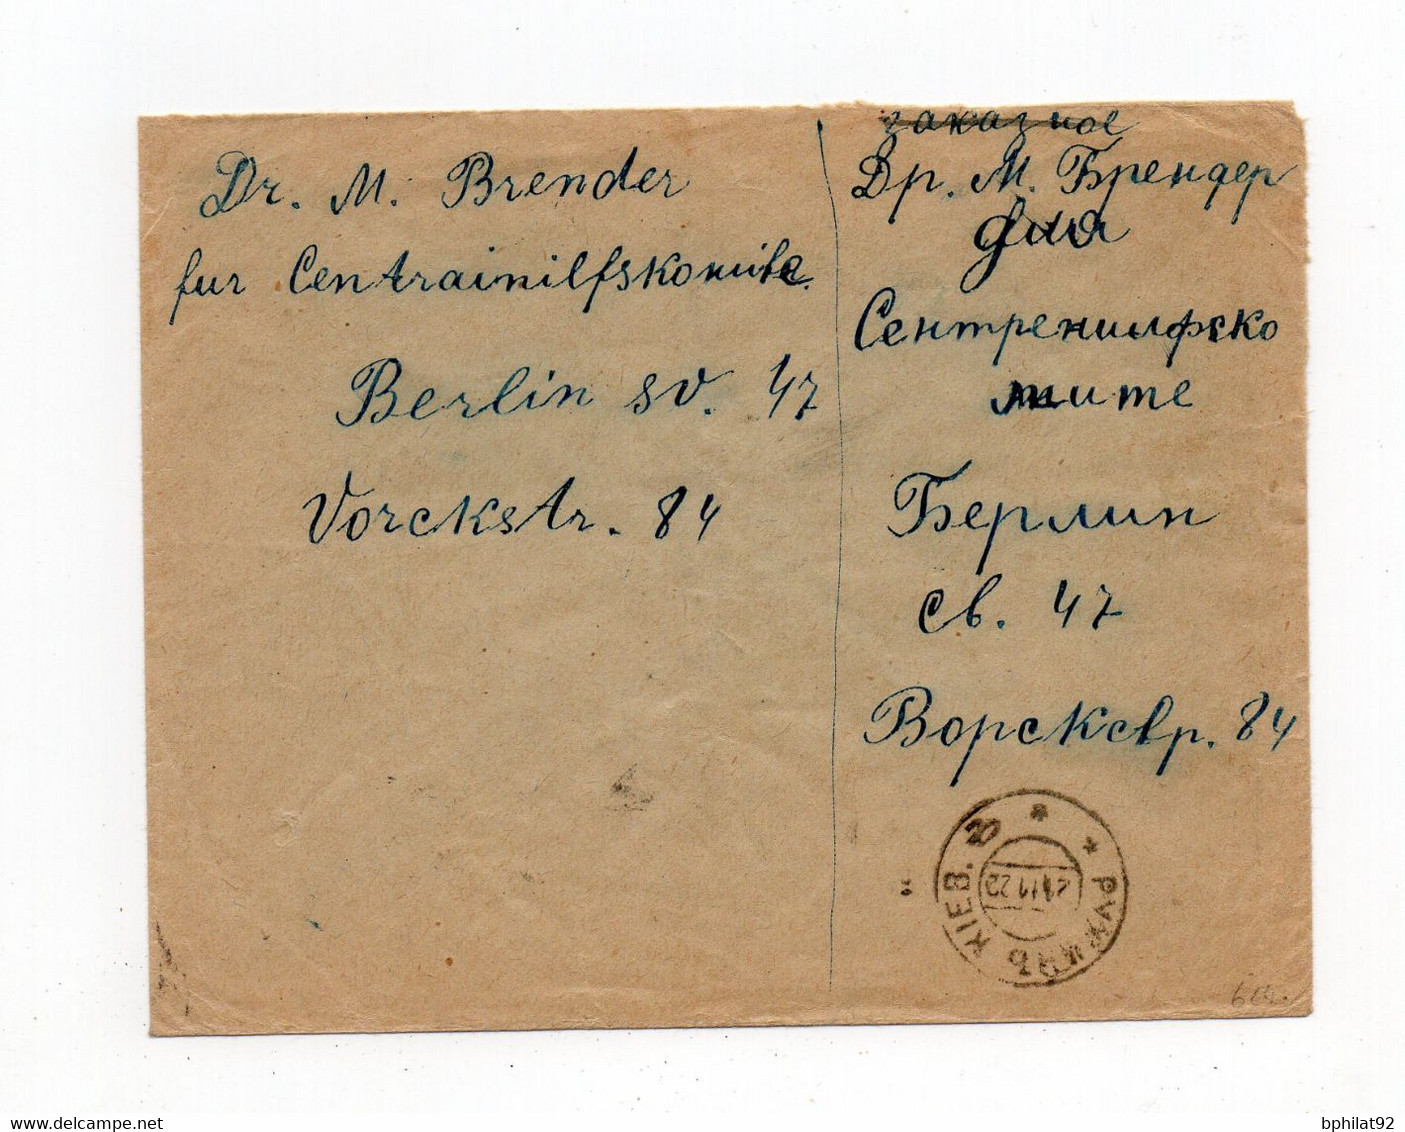 Dr. M. Brender
fur Centrainilfskomite.
Berlin sv. 47
Vorckstr. 84
заказное
Др. М. Брендер
для
Сентренилфско
мите
Берлин
св. 47
Ворсксвр. 84
РУЖИНЪ КІЕВ.
delcampe.net
bphilat92